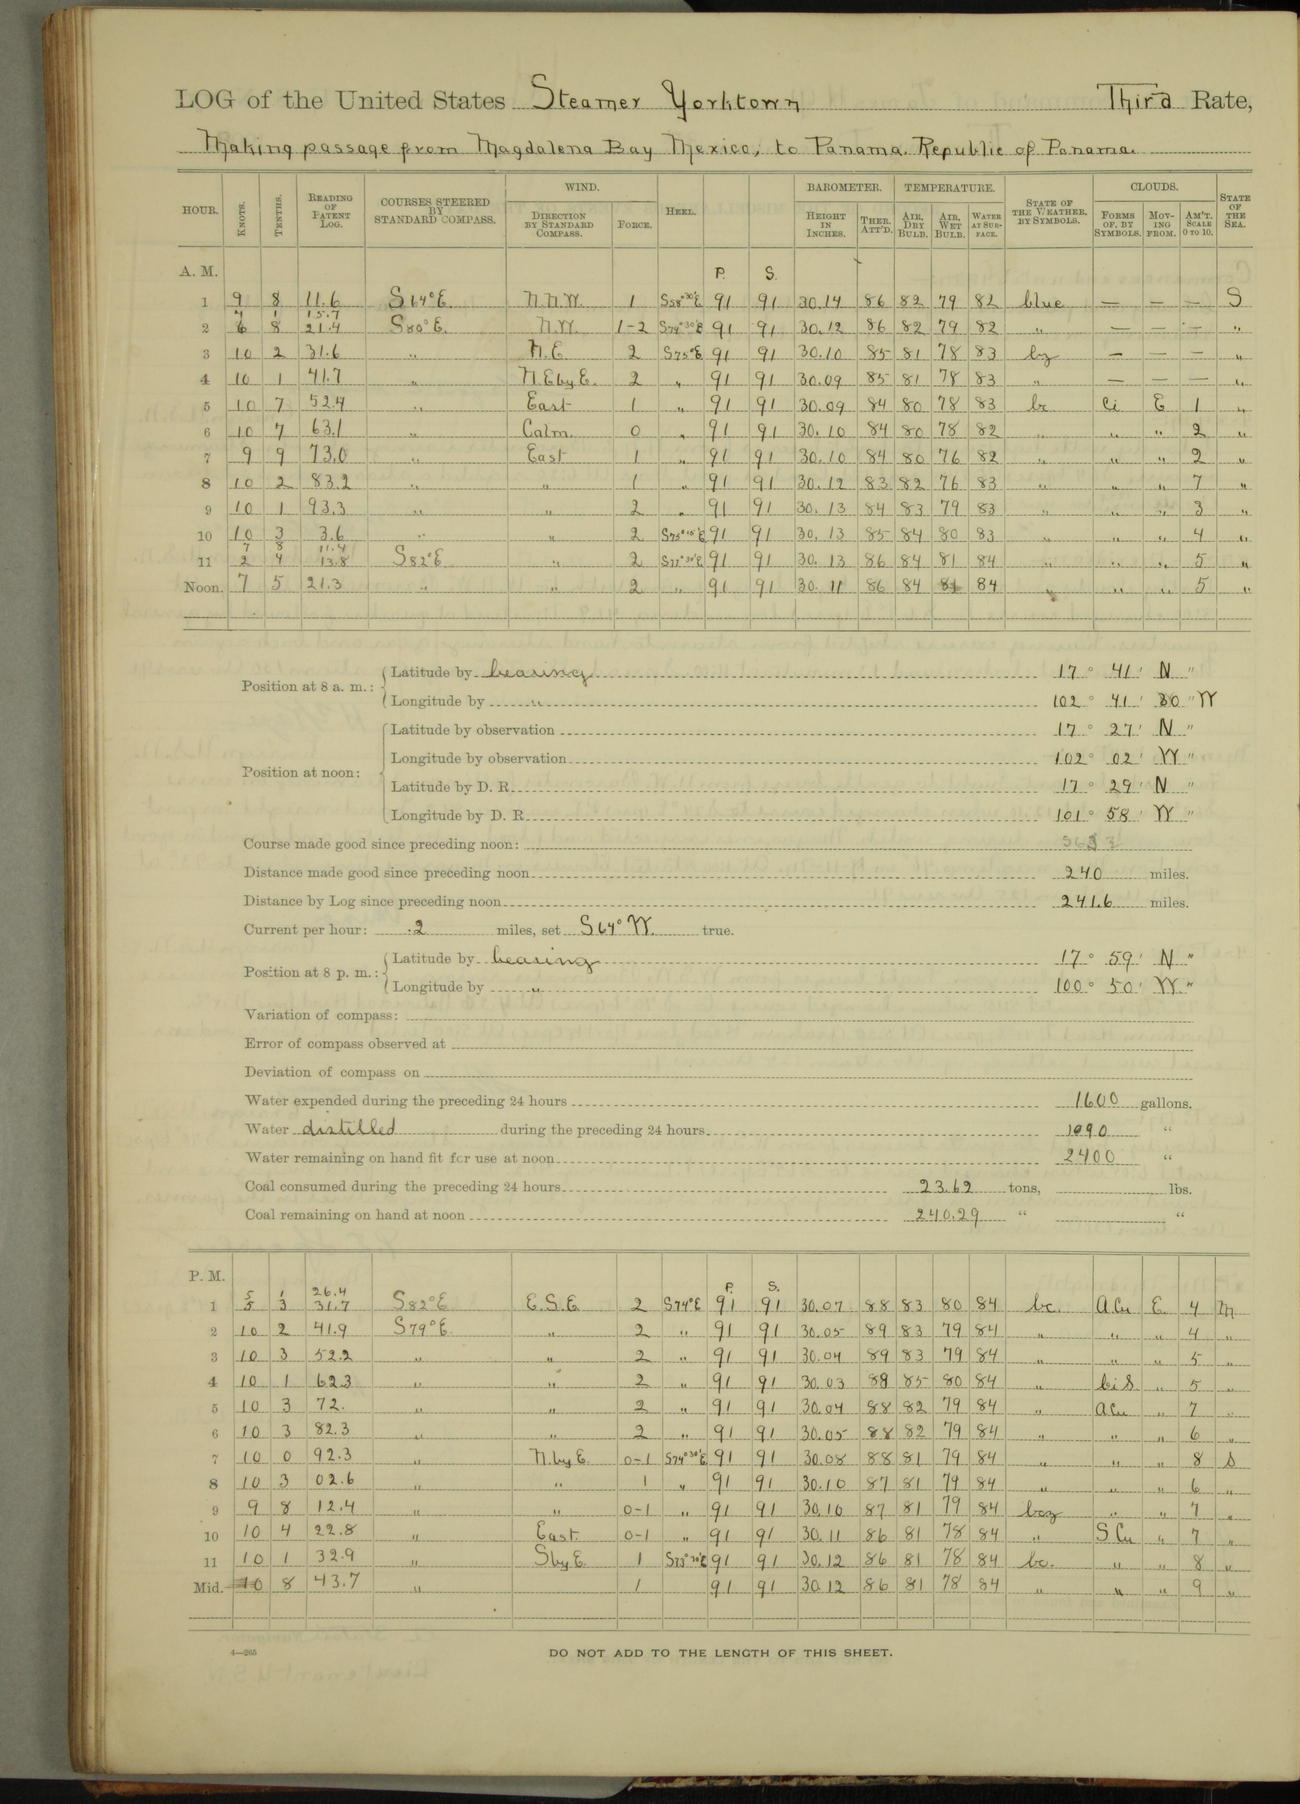 LOG of the United States Steamer Yorktown Third Rate,
Making passage from Magdalena Bay Mexico, to Panama. Republic of Panama.
HOUR. KNOTS. TENTHS. READING OF PATENT LOG. COURSES STEERED BY STANDARD COMPASS. WIND. DIRECTION BY STANDARD COMPASS. FORCE. HEEL. BAROMETER. HEIGHT IN INCHES. THER. ATT'D. TEMPERATURE. AIR, DRY BULB. AIR, WET BULB. WATER AT SURFACE. STATE OF THE WEATHER, BY SYMBOLS. CLOUDS. FORMS OF, BY SYMBOLS. MOVING FROM. AM'T. SCALE 0 TO 10. STATE OF THE SEA.
A. M. P. S.
1 9 8 11.6 S64°E. N.N.W. 1 S58°30'E 91 91 30.14 86 82 79 82 blue — — — S
4 1 15.7
2 6 8 21.4 S80°E. N.W. 1-2 S74°30'E 91 91 30.12 86 82 79 82 " — — — "
3 10 2 31.6 " N.E. 2 S75°E 91 91 30.10 85 81 78 83 bz — — — "
4 10 1 41.7 " N.E by E. 2 " 91 91 30.09 85 81 78 83 " — — — "
5 10 7 52.4 " East 1 " 91 91 30.09 84 80 78 83 bc Ci E 1 "
6 10 7 63.1 " Calm. 0 " 91 91 30.10 84 80 78 82 " " " 2 "
7 9 9 73.0 " East 1 " 91 91 30.10 84 80 76 82 " " " 2 "
8 10 2 83.2 " " 1 " 91 91 30.12 83 82 76 83 " " " 7 "
9 10 1 93.3 " " 2 " 91 91 30.13 84 83 79 83 " " " 3 "
10 10 3 3.6 " " 2 S75°15'E 91 91 30.13 85 84 80 83 " " " 4 "
7 8 11.4
11 2 4 13.8 S82°E " 2 S77°30'E 91 91 30.13 86 84 81 84 " " " 5 "
Noon. 7 5 21.3 " " 2 " 91 91 30.11 86 84 81 84 " " " 5 "
Position at 8 a. m.: Latitude by bearing 17° 41' N "
Longitude by " 102° 41' 30" W
Position at noon: Latitude by observation 17° 27' N "
Longitude by observation 102° 02' W "
Latitude by D. R. 17° 29' N "
Longitude by D. R. 101° 58' W "
Course made good since preceding noon:
Distance made good since preceding noon 240 miles.
Distance by Log since preceding noon 241.6 miles.
Current per hour: .2 miles, set S64°W. true.
Position at 8 p. m.: Latitude by bearing 17° 59' N "
Longitude by " 100° 50' W. "
Variation of compass:
Error of compass observed at
Deviation of compass on
Water expended during the preceding 24 hours 1600 gallons.
Water distilled during the preceding 24 hours 1090 "
Water remaining on hand fit for use at noon 2400 "
Coal consumed during the preceding 24 hours 23.62 tons, lbs.
Coal remaining on hand at noon 240.29 " "
P. M. P. S.
5 1 26.4
1 5 3 31.7 S82°E E.S.E 2 S74°E 91 91 30.07 88 83 80 84 bc. A.Cu E. 4 M
2 10 2 41.9 S79°E. " 2 " 91 91 30.05 89 83 79 84 " " " 4 "
3 10 3 52.2 " " 2 " 91 91 30.04 89 83 79 84 " " " 5 "
4 10 1 62.3 " " 2 " 91 91 30.03 88 85 80 84 " CiS " 5 "
5 10 3 72. " " 2 " 91 91 30.04 88 82 79 84 " A Cu " 7 "
6 10 3 82.3 " " 2 " 91 91 30.05 88 82 79 84 " " " 6 "
7 10 0 92.3 " N. by E. 0-1 S74°30'E 91 91 30.08 88 81 79 84 " " " 8 S
8 10 3 02.6 " " 1 " 91 91 30.10 87 81 79 84 " " " 6 "
9 9 8 12.4 " " 0-1 " 91 91 30.10 87 81 79 84 bcz " " 7 "
10 10 4 22.8 " East. 0-1 " 91 91 30.11 86 81 78 84 " S.Cu " 7 "
11 10 1 32.9 " S by E. 1 91 91 30.12 86 81 78 84 bc. " " 8 "
Mid. 10 8 43.7 " 1 91 91 30.12 86 81 78 84 " " " 9 "
4—265
DO NOT ADD TO THE LENGTH OF THIS SHEET.